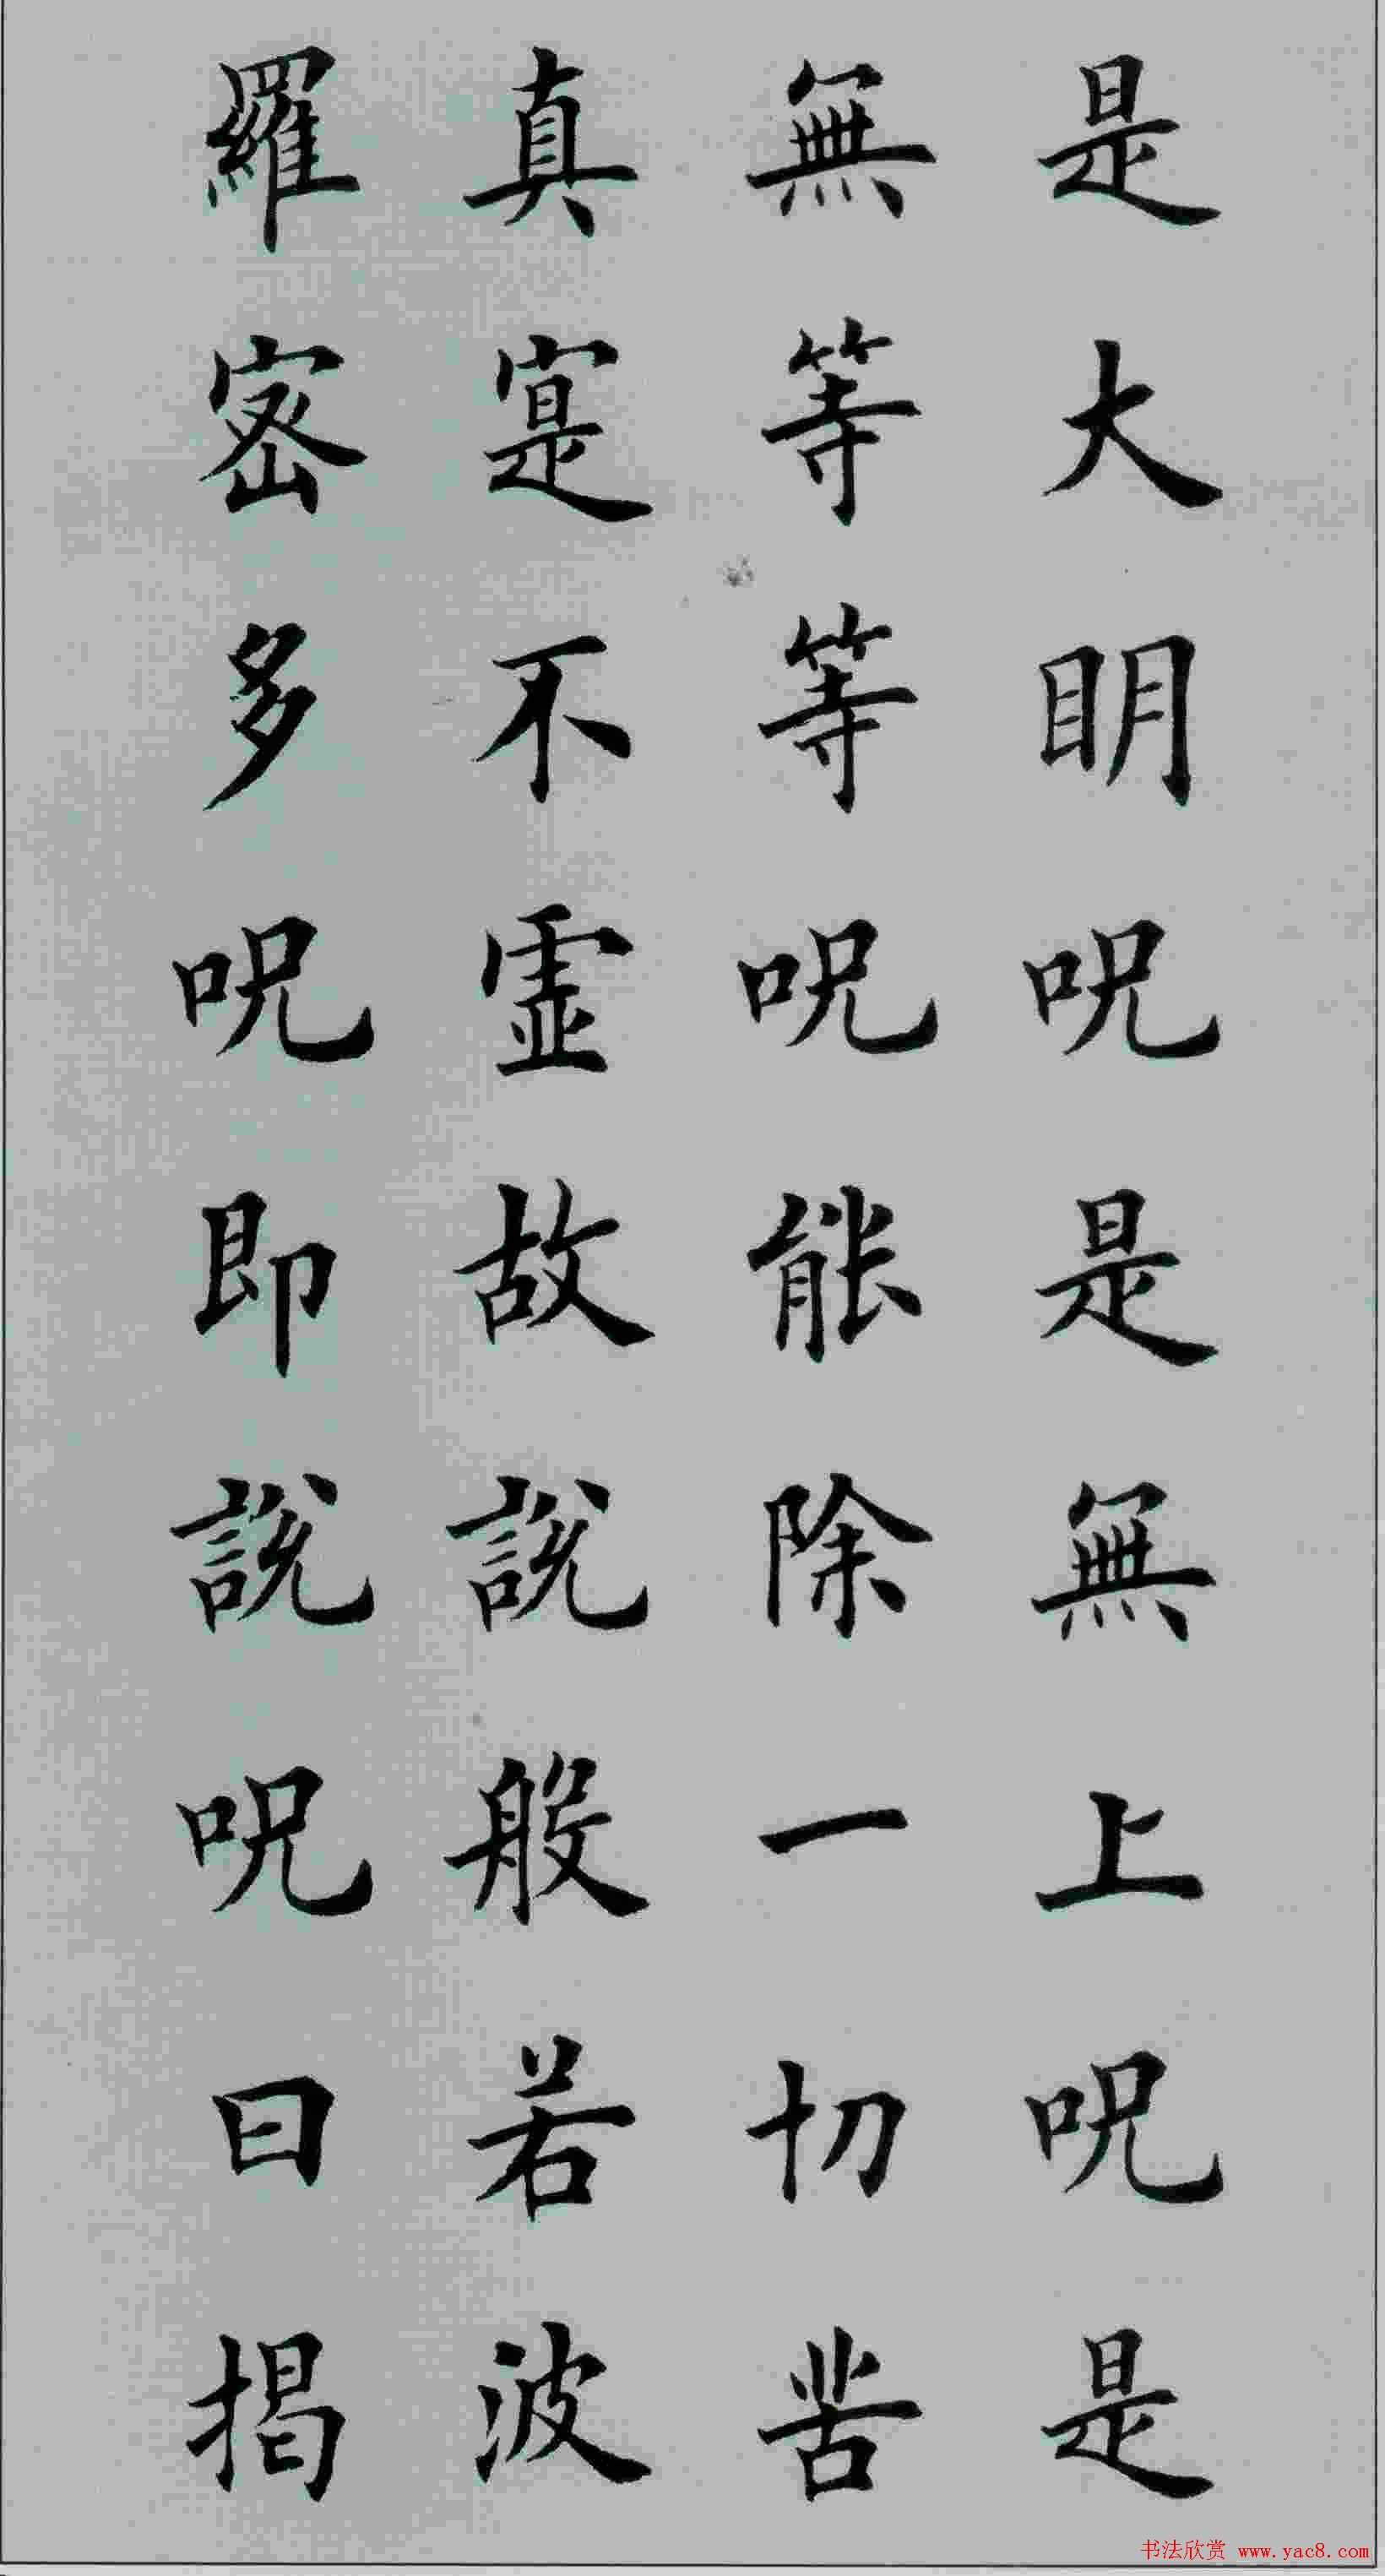 是大明呪是無上呪是
無等等呪能除一切苦
真寔不虛故說般若波
羅密多呪即說呪曰揭
书法欣赏 www.yac8.com